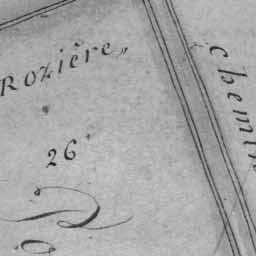 Rozière,,
26
chemin